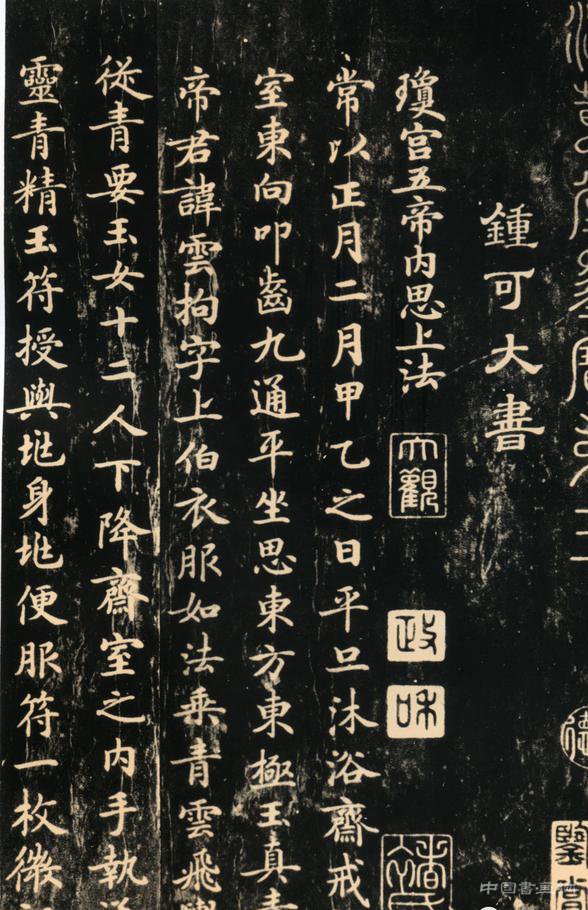 鍾可大書
瓊宮五帝内思上法
大觀
政
和
常以正月二月甲乙之日平旦沐浴齋戒
室東向叩齒九通平坐思東方東極玉真青
帝君諱雲拘字上伯衣服如法乘青雲飛
從青要玉女十二人下降齋室之内手執
靈青精玉符授與㘴身㘴便服符一枚微
鑒賞
中国書画网